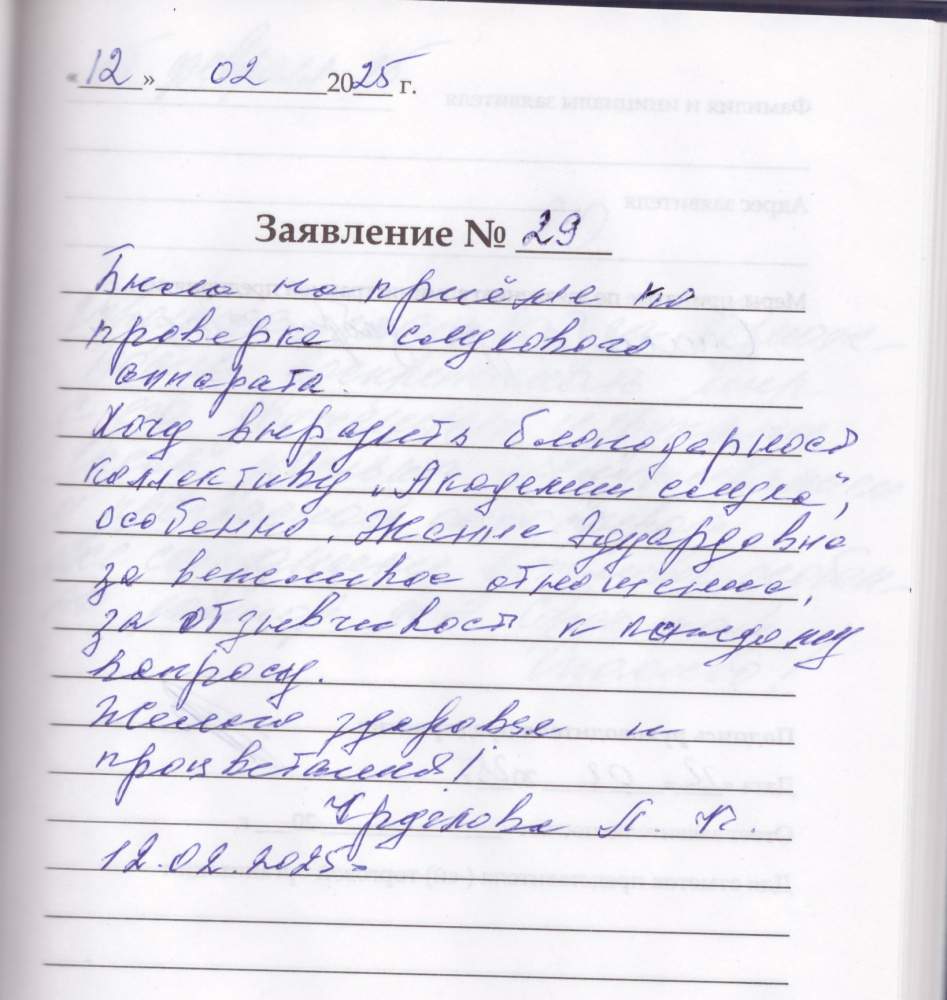 «12» 02 2025 г.
Заявление № 29
Была на приёме на
проверке слухового
аппарата.
Хочу выразить благодарность
коллективу „Академии слуха",
особенно. Жанне Эдуардовне
за вежливое отношение,
за отзывчивость к каждому
вопросу.
Желаю здоровья и
процветания!
12.02.2025